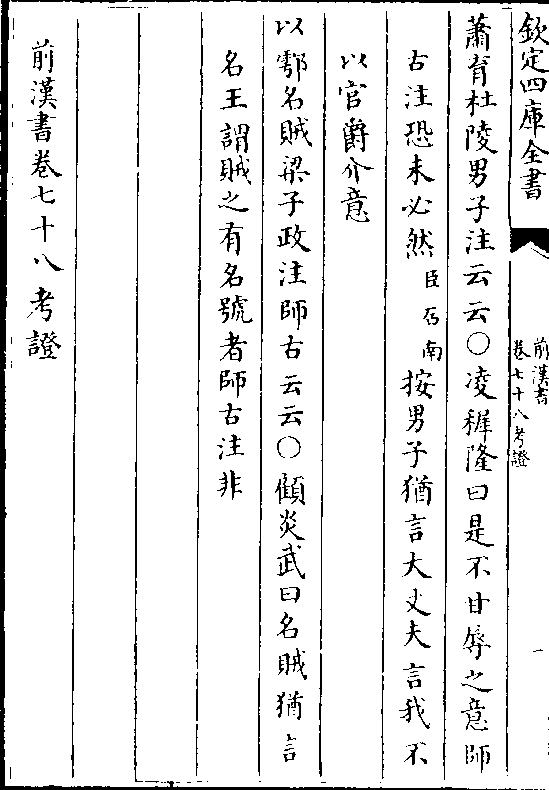 欽定四庫全書
前漢書
卷七十八考證
蕭育杜陵男子注云云○凌稚隆曰是不甘辱之意師
古注恐未必然臣召南按男子猶言大丈夫言我不
以官爵介意
以鄠名賊梁子政注師古云云○顧炎武曰名賊猶言
名王謂賊之有名號者師古注非
前漢書卷七十八考證